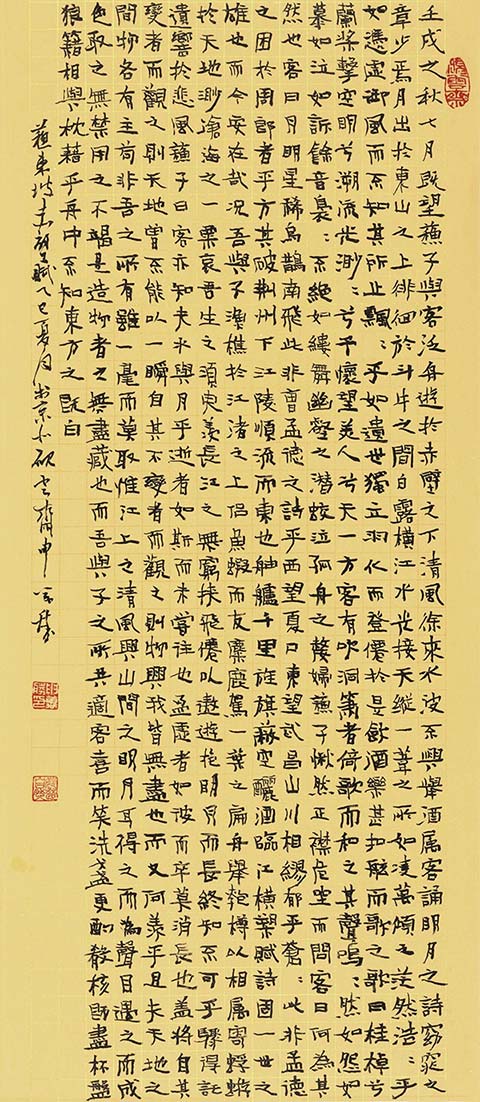 壬戌之秋七月既望蘇子與客泛舟遊於赤壁之下清風徐來水波不興舉酒属客誦明月之詩窈窕之
章少焉月出於東山之上徘徊於斗牛之間白露橫江水光接天縱一葦之所如凌萬頃之茫然浩〻乎
如憑虛御風而不知其所止飄〻乎如遺世獨立羽化而登僊於是飲酒樂甚扣舷而歌之歌曰桂棹兮
蘭槳擊空明兮溯流光渺〻兮予懷望美人兮天一方客有吹洞簫者倚歌而和之其聲嗚〻然如怨如
慕如泣如訴餘音裊〻不絕如縷舞幽壑之潛蛟泣孤舟之嫠婦蘇子愀然正襟危坐而問客曰何為其
然也客曰月明星稀烏鵲南飛此非曹孟德之詩乎西望夏口東望武昌山川相繆郁乎蒼〻此非孟德
之困於周郎者乎方其破荆州下江陵順流而東也舳艫千里旌旗蔽空釃酒臨江橫槊賦詩固一世之
雄也而今安在哉況吾與子漁樵於江渚之上侶魚蝦而友麋鹿駕一葉之扁舟舉匏樽以相属寄蜉蝣
於天地渺滄海之一粟哀吾生之須臾羨長江之無窮挾飛僊以遨遊抱明月而長終知不可乎驟得託
遺響於悲風蘇子曰客亦知夫水與月乎逝者如斯而未嘗往也盈虛者如彼而卒莫消長也蓋將自其
變者而觀之則天地曾不能以一瞬自其不變者而觀之則物與我皆無盡也而又何羨乎且夫天地之
間物各有主苟非吾之所有雖一毫而莫取惟江上之清風與山間之明月耳得之而為聲目遇之而成
色取之無禁用之不竭是造物者之無盡藏也而吾與子之所共適客喜而笑洗盞更酌殽核既盡杯盤
狼籍相與枕藉乎舟中不知東方之既白
蘇東坡赤壁賦乙巳夏月書京